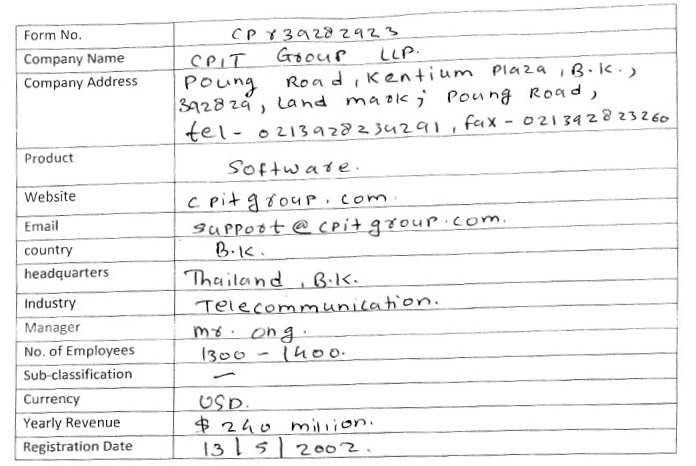 Form No. CPr39282923
Company Name CPIT Group LLP.
Company Address Poung Road, Kentium Plaza, B.K.,
392829, Land mark; Poung Road,
tel - 0213928234291, fax - 021392823260
Product Software.
Website cpitgroup.com.
Email support@cpitgroup.com.
country B.K.
headquarters Thailand, B.K.
Industry Telecommunication.
Manager mr. ong.
No. of Employees 1300 - 1400.
Sub-classification —
Currency USD.
Yearly Revenue $ 240 million.
Registration Date 13|5|2002.